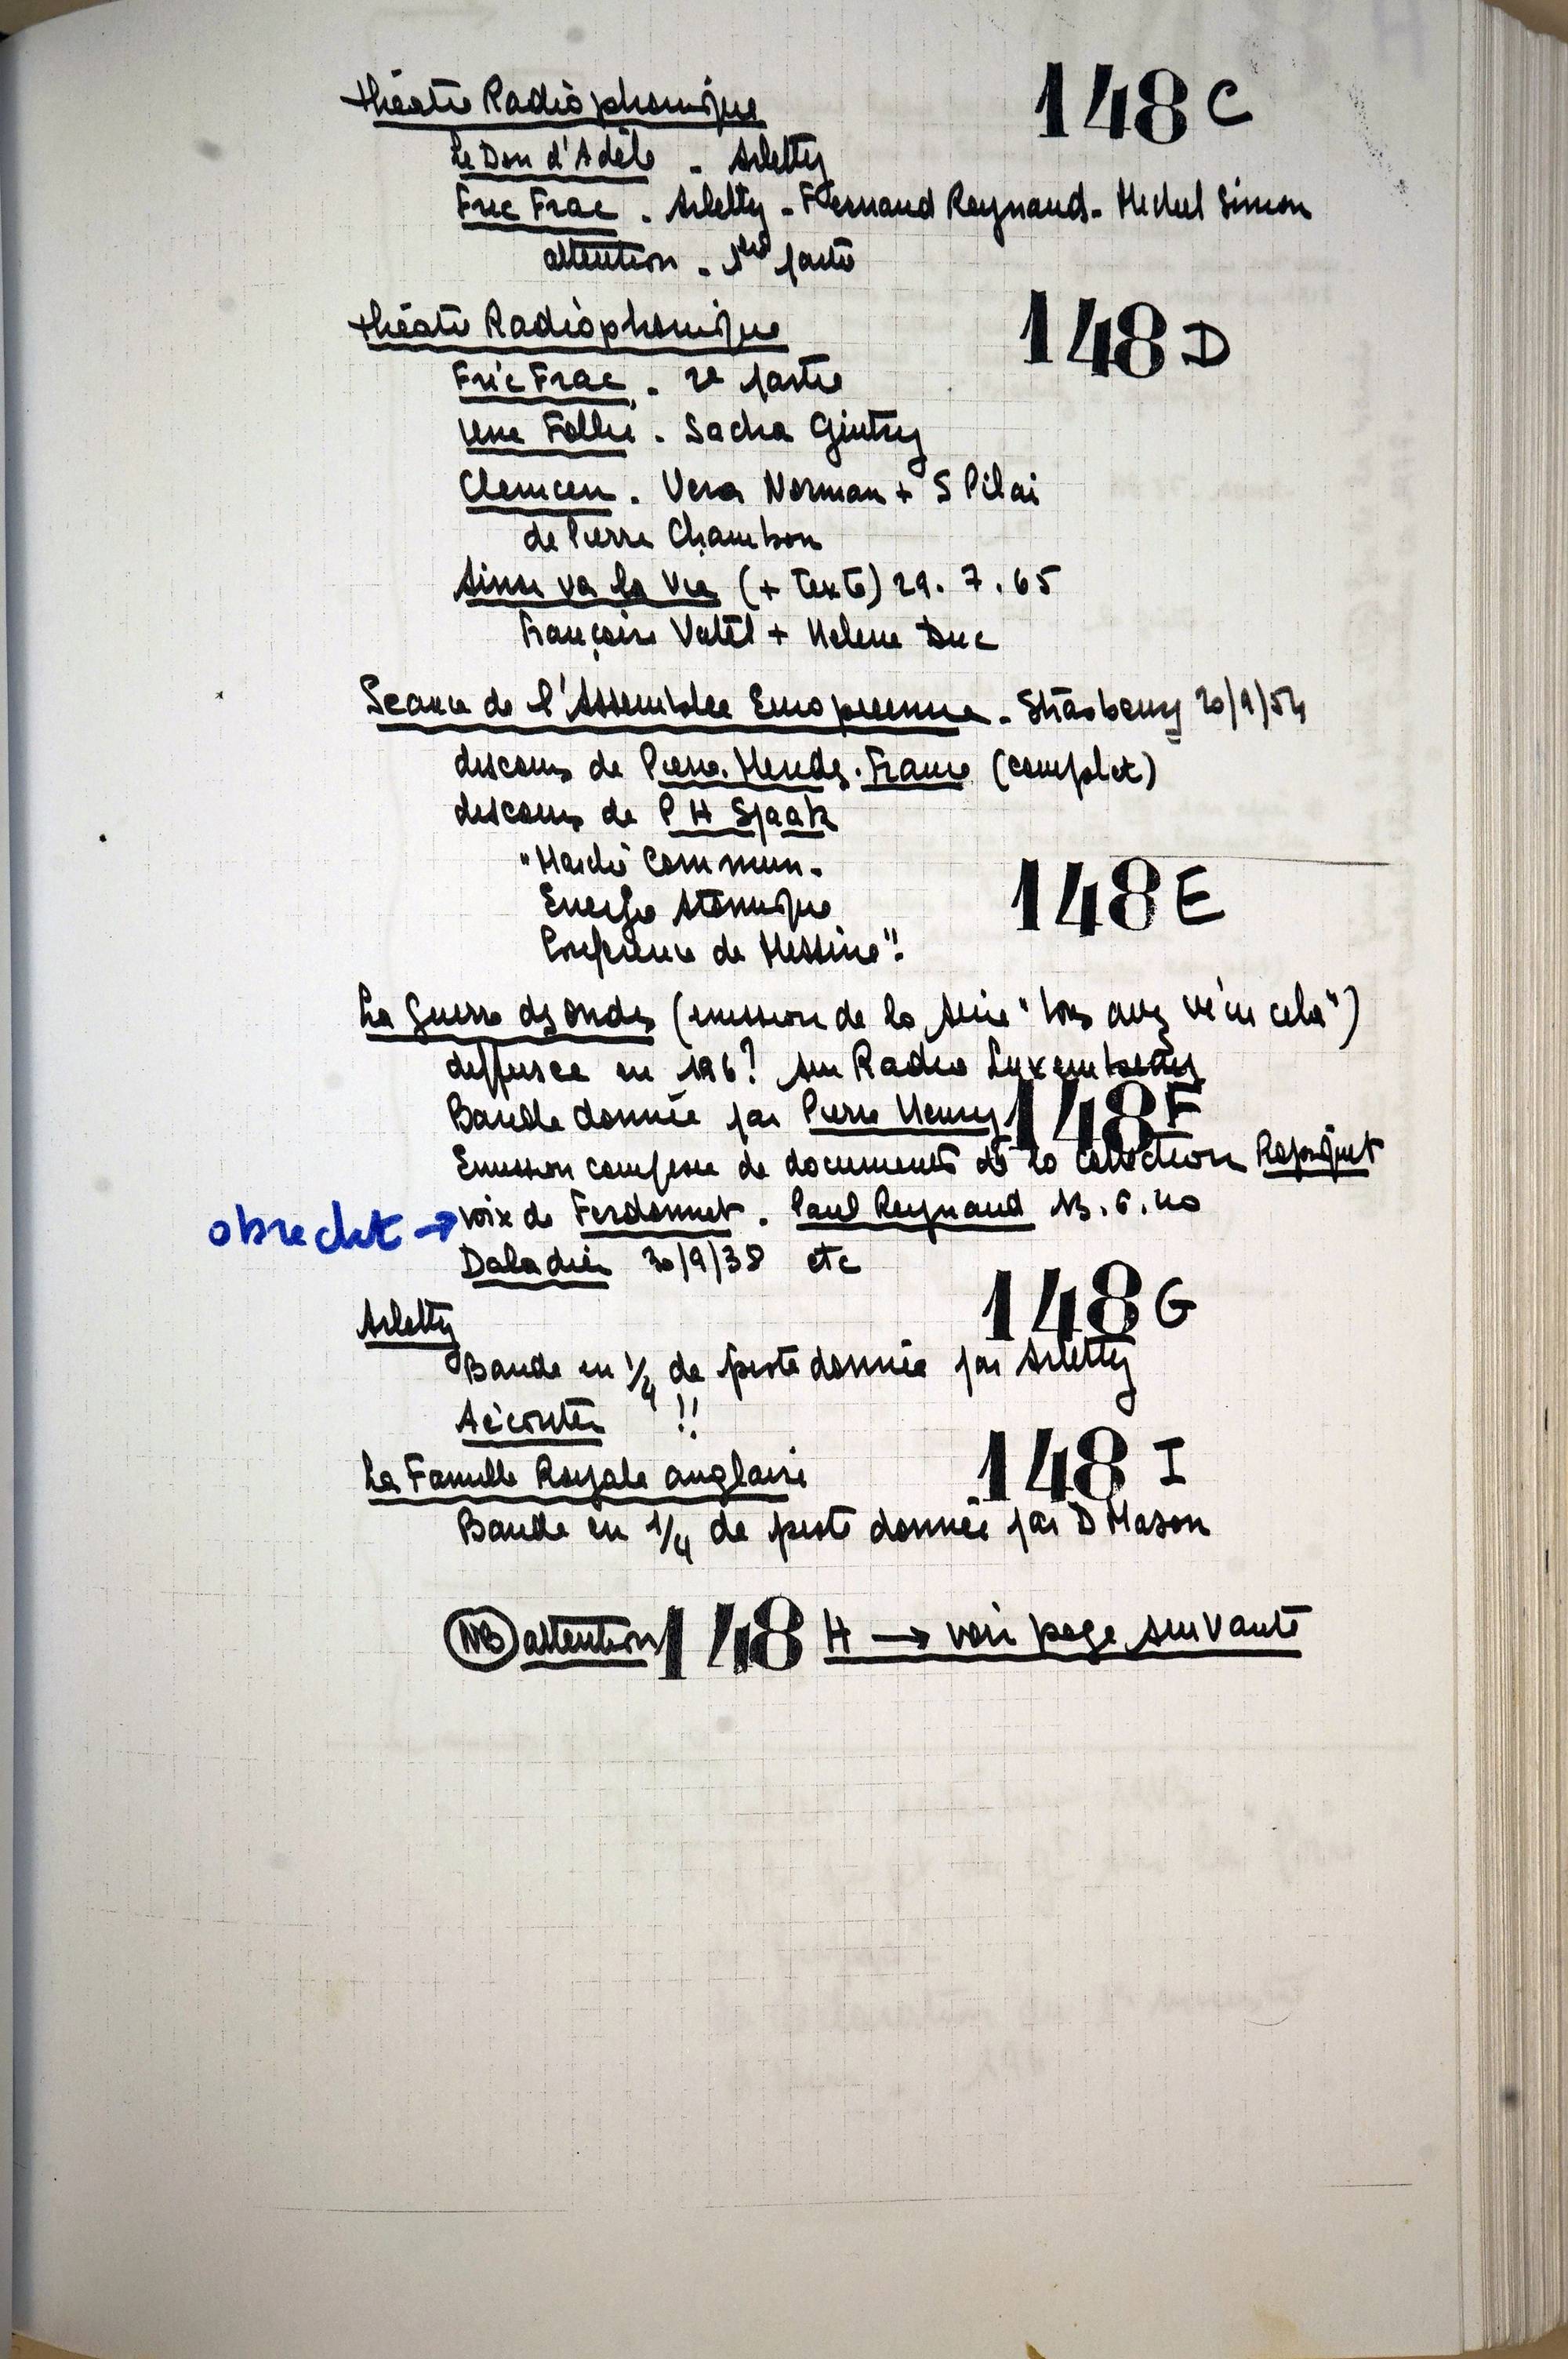 théatre Radiophonique 148 C
Le Don d'Adèle - Arletty
Fric Frac - Arletty - Fernand Raynaud - Michel Simon
attention - 1ère partie
théatre Radiophonique 148 D
Fric Frac - 2e partie
Une Follie - Sacha Guitry
Vera Norman + S Pilai
de Pierre Chambon
Ainsi va la Vie (+ texte) 29.7.65
Françoise Vatel + Helene Duc
Seance de l'Assemblee Europeenne - Strasbourg 20/9/54
discours de Pierre Mendes-France (complet)
discours de P H Spaak
"Marché Commun - 148 E
Energie Atomique
Conference de Messine".
La Guerre des ondes (emission de la série "Vous avez vécu cela")
diffusee en 196? sur Radio Luxembourg
Bande donnée par Pierre Henry 148 F
Emission composee de documents de la collection
obrecht → voix de Ferdonnet - Paul Reynaud 13.6.40
Daladier 30/9/38 etc
148 G
Arletty
Bande en 1/4 de piste donnée par Arletty
A écouter !!
La Famille Royale anglaise 148 I
Bande en 1/4 de piste donnée par D Mason
NB attention 148 H → voir page suivante